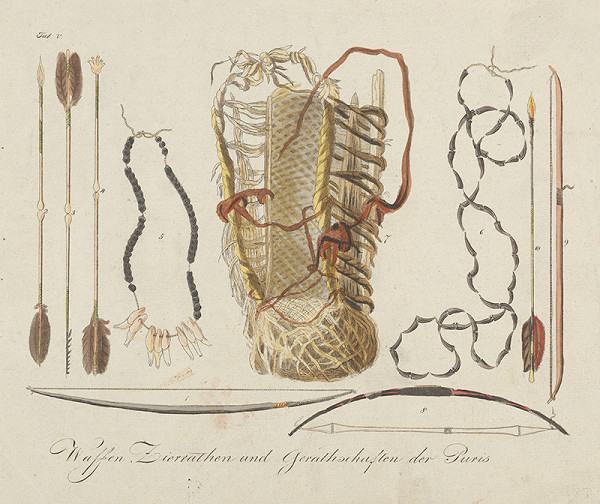 Taf. V.
2
3
4
5
6
7
10
9
1
8
Waffen Zierrathen und Geräthschaften der Puris